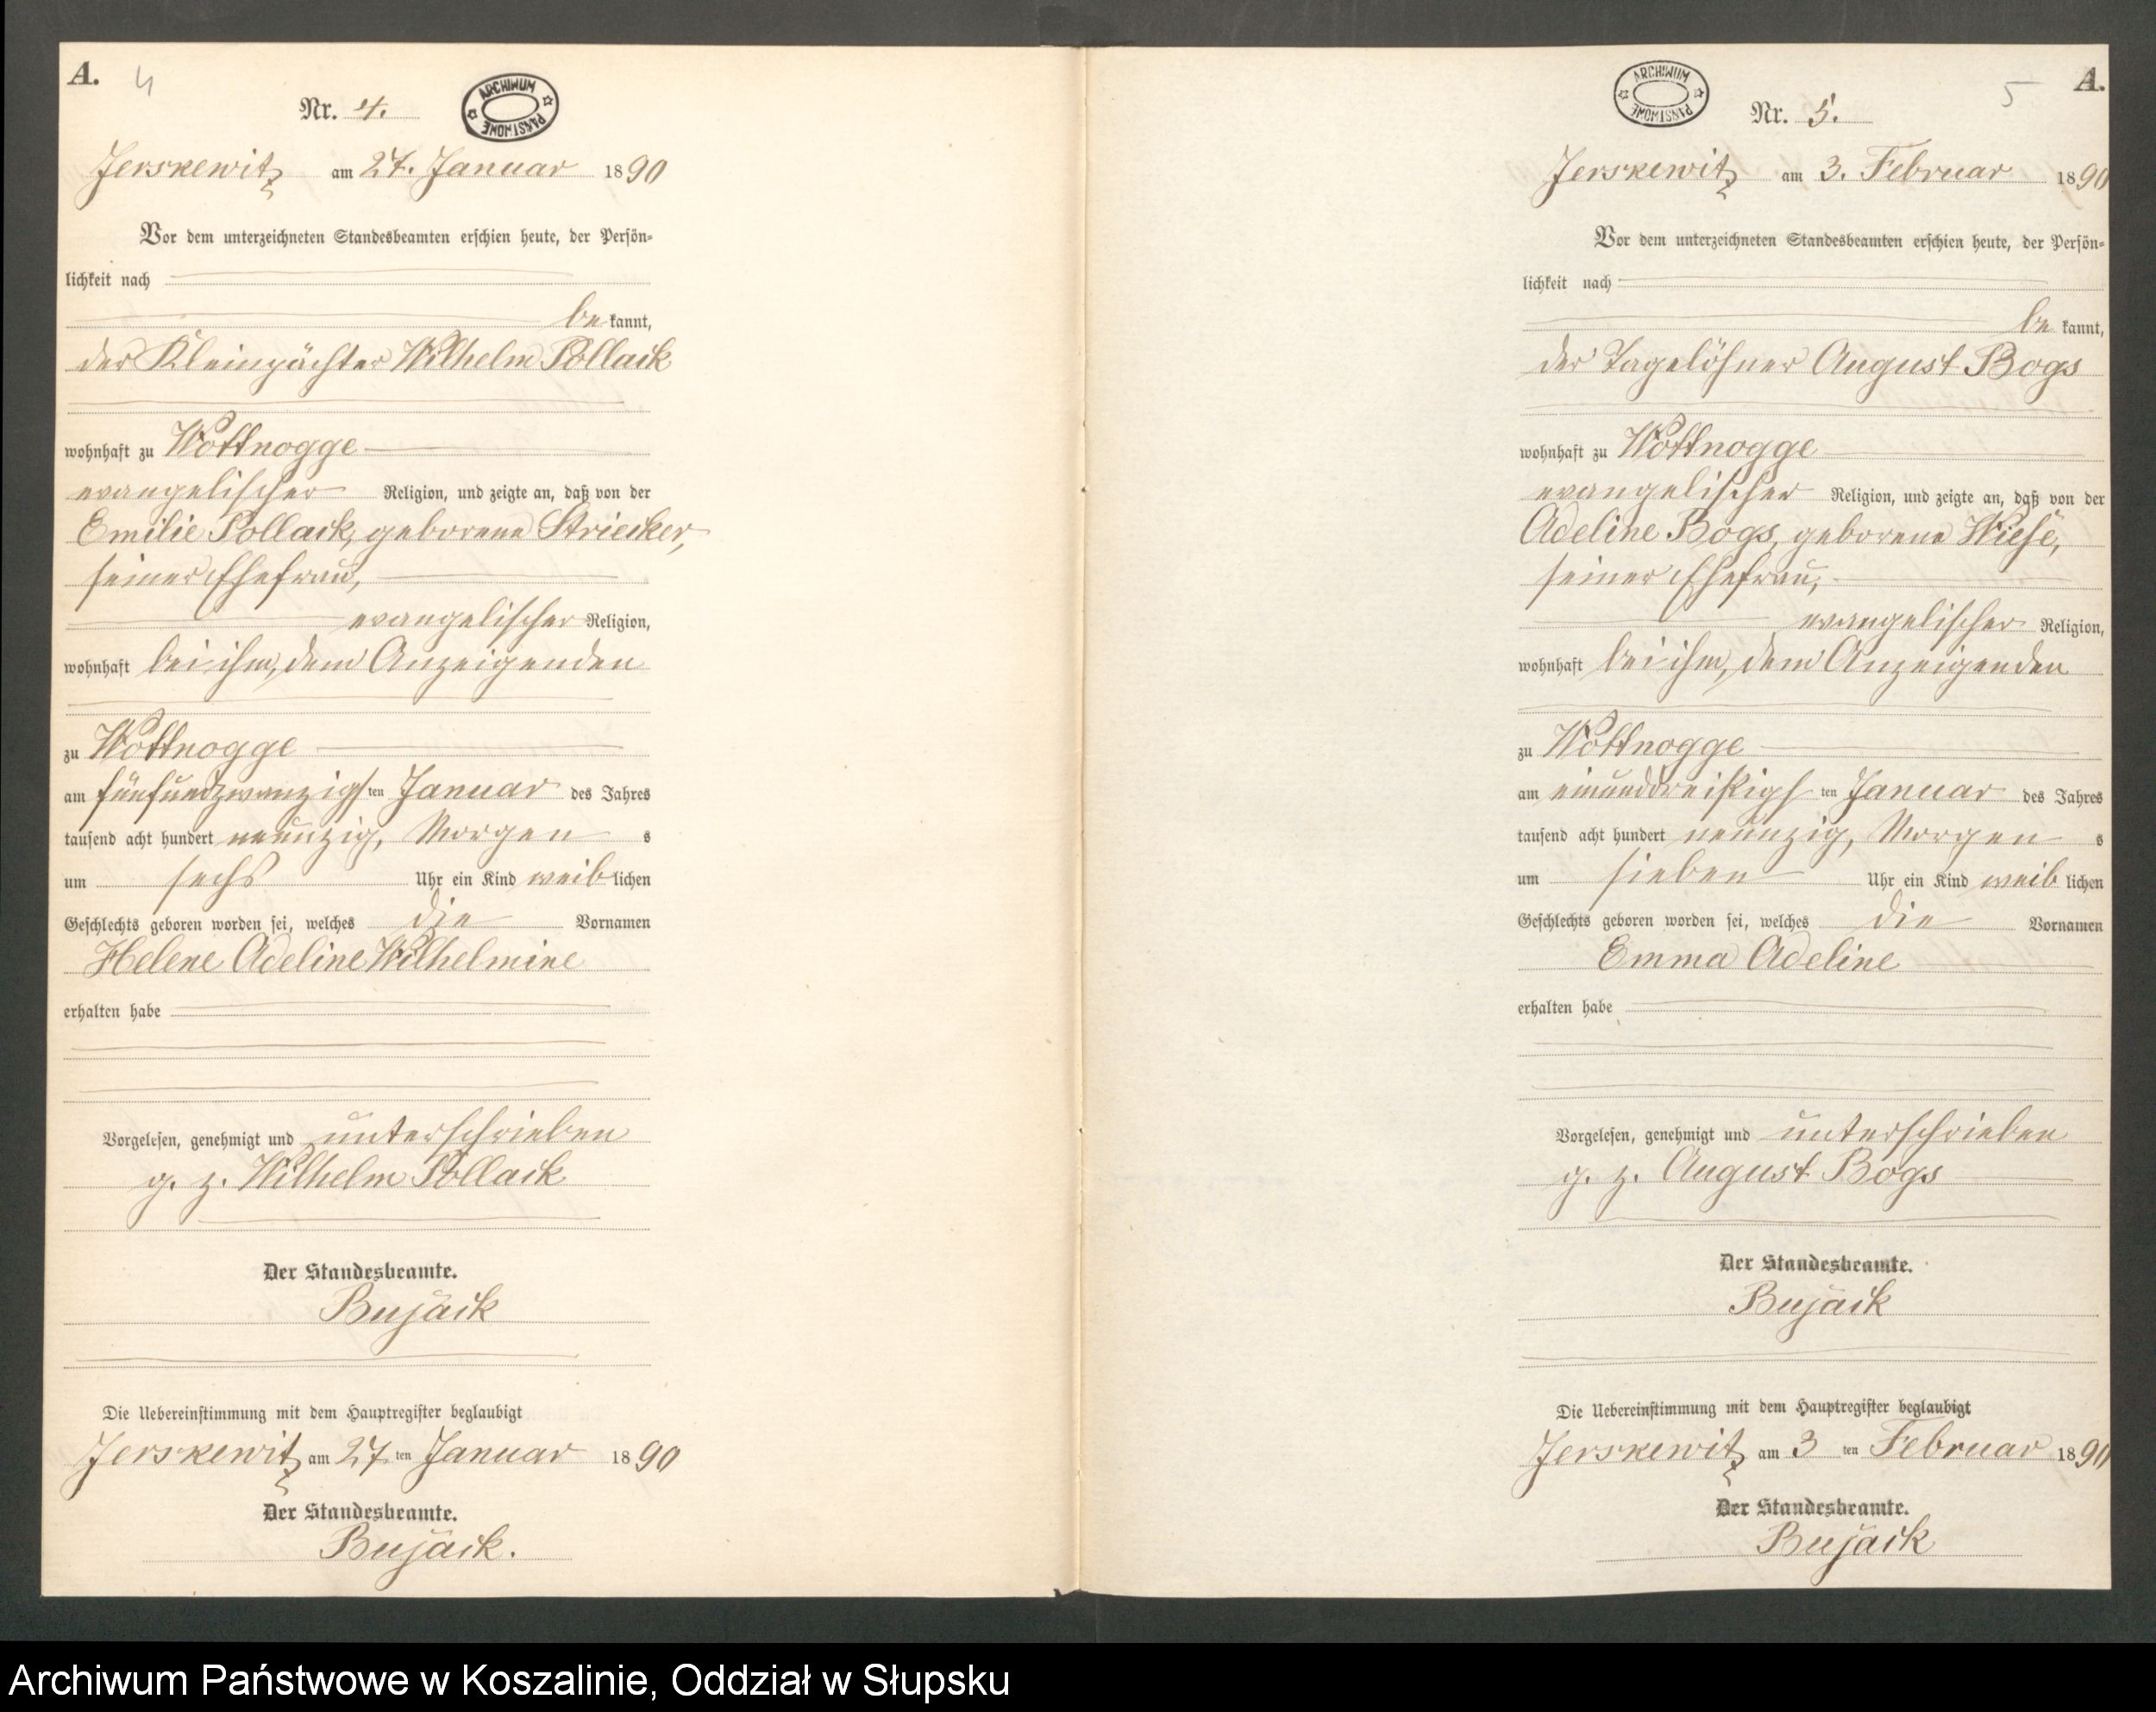 A. 4
ARCHIWUM PAŃSTWOWE
Nr. 4.
Jerskewitz am 27. Januar 1890
Vor dem unterzeichneten Standesbeamten erschien heute, der Persön-
lichkeit nach
be kannt,
der Kleinpächter Wilhelm Pollack
wohnhaft zu Wottnogge
evangelischer Religion, und zeigte an, daß von der
Emilie Pollack, geborene Striecker,
seiner Ehefrau,
evangelischer Religion,
wohnhaft bei ihm, dem Anzeigenden
zu Wottnogge
am fünfundzwanzigsten Januar des Jahres
tausend acht hundert neunzig, Morgens
um sechs Uhr ein Kind weiblichen
Geschlechts geboren worden sei, welches die Vornamen
Helene Adeline Wilhelmine
erhalten habe
Vorgelesen, genehmigt und unterschrieben
g. z. Wilhelm Pollack
Der Standesbeamte.
Bujack
Die Uebereinstimmung mit dem Hauptregister beglaubigt
Jerskewitz am 27ten Januar 1890
Der Standesbeamte.
Bujack.
5 A.
ARCHIWUM PAŃSTWOWE
Nr. 5.
Jerskewitz am 3. Februar 1890
Vor dem unterzeichneten Standesbeamten erschien heute, der Persön-
lichkeit nach
be kannt,
der Tagelöhner August Bogs
wohnhaft zu Wottnogge
evangelischer Religion, und zeigte an, daß von der
Adeline Bogs, geborene Wiese,
seiner Ehefrau,
evangelischer Religion,
wohnhaft bei ihm, dem Anzeigenden
zu Wottnogge
am einunddreißigsten Januar des Jahres
tausend acht hundert neunzig, Morgens
um sieben Uhr ein Kind weiblichen
Geschlechts geboren worden sei, welches die Vornamen
Emma Adeline
erhalten habe
Vorgelesen, genehmigt und unterschrieben
g. z. August Bogs
Der Standesbeamte.
Bujack
Die Uebereinstimmung mit dem Hauptregister beglaubigt
Jerskewitz am 3 ten Februar 1890
Der Standesbeamte.
Bujack
Archiwum Państwowe w Koszalinie, Oddział w Słupsku